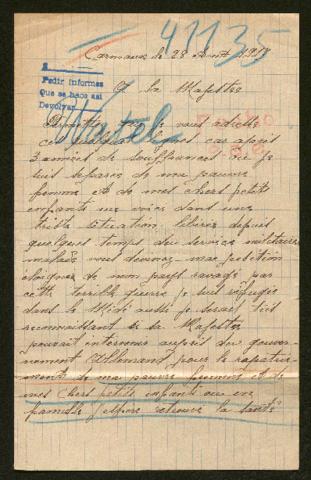 41135
Carmaux le 28 Août 1918
Pedir informes
Que se hace así
Devolver
A sa Majesté
Permettez que je vous adresse
ces quelques lignes car après
3 années de souffrances où je
suis séparés de ma pauvre
femme et de mes chers petits
enfants me voici dans une
trible situation libérés depuis
quelques temps du services militaire
malade vous devinez ma position
éloignée de mon pays ravagé par
cette terrible guerre je suis réfugié
dans le Midi aussi je serais très
reconnaissant si sa Majesté
pouvait intervenir auprès du gouver-
nement Allemand pour le rapatrie-
ment de ma pauvre femme et de
mes chers petits enfants car en
famille j'espère retrouver la santé